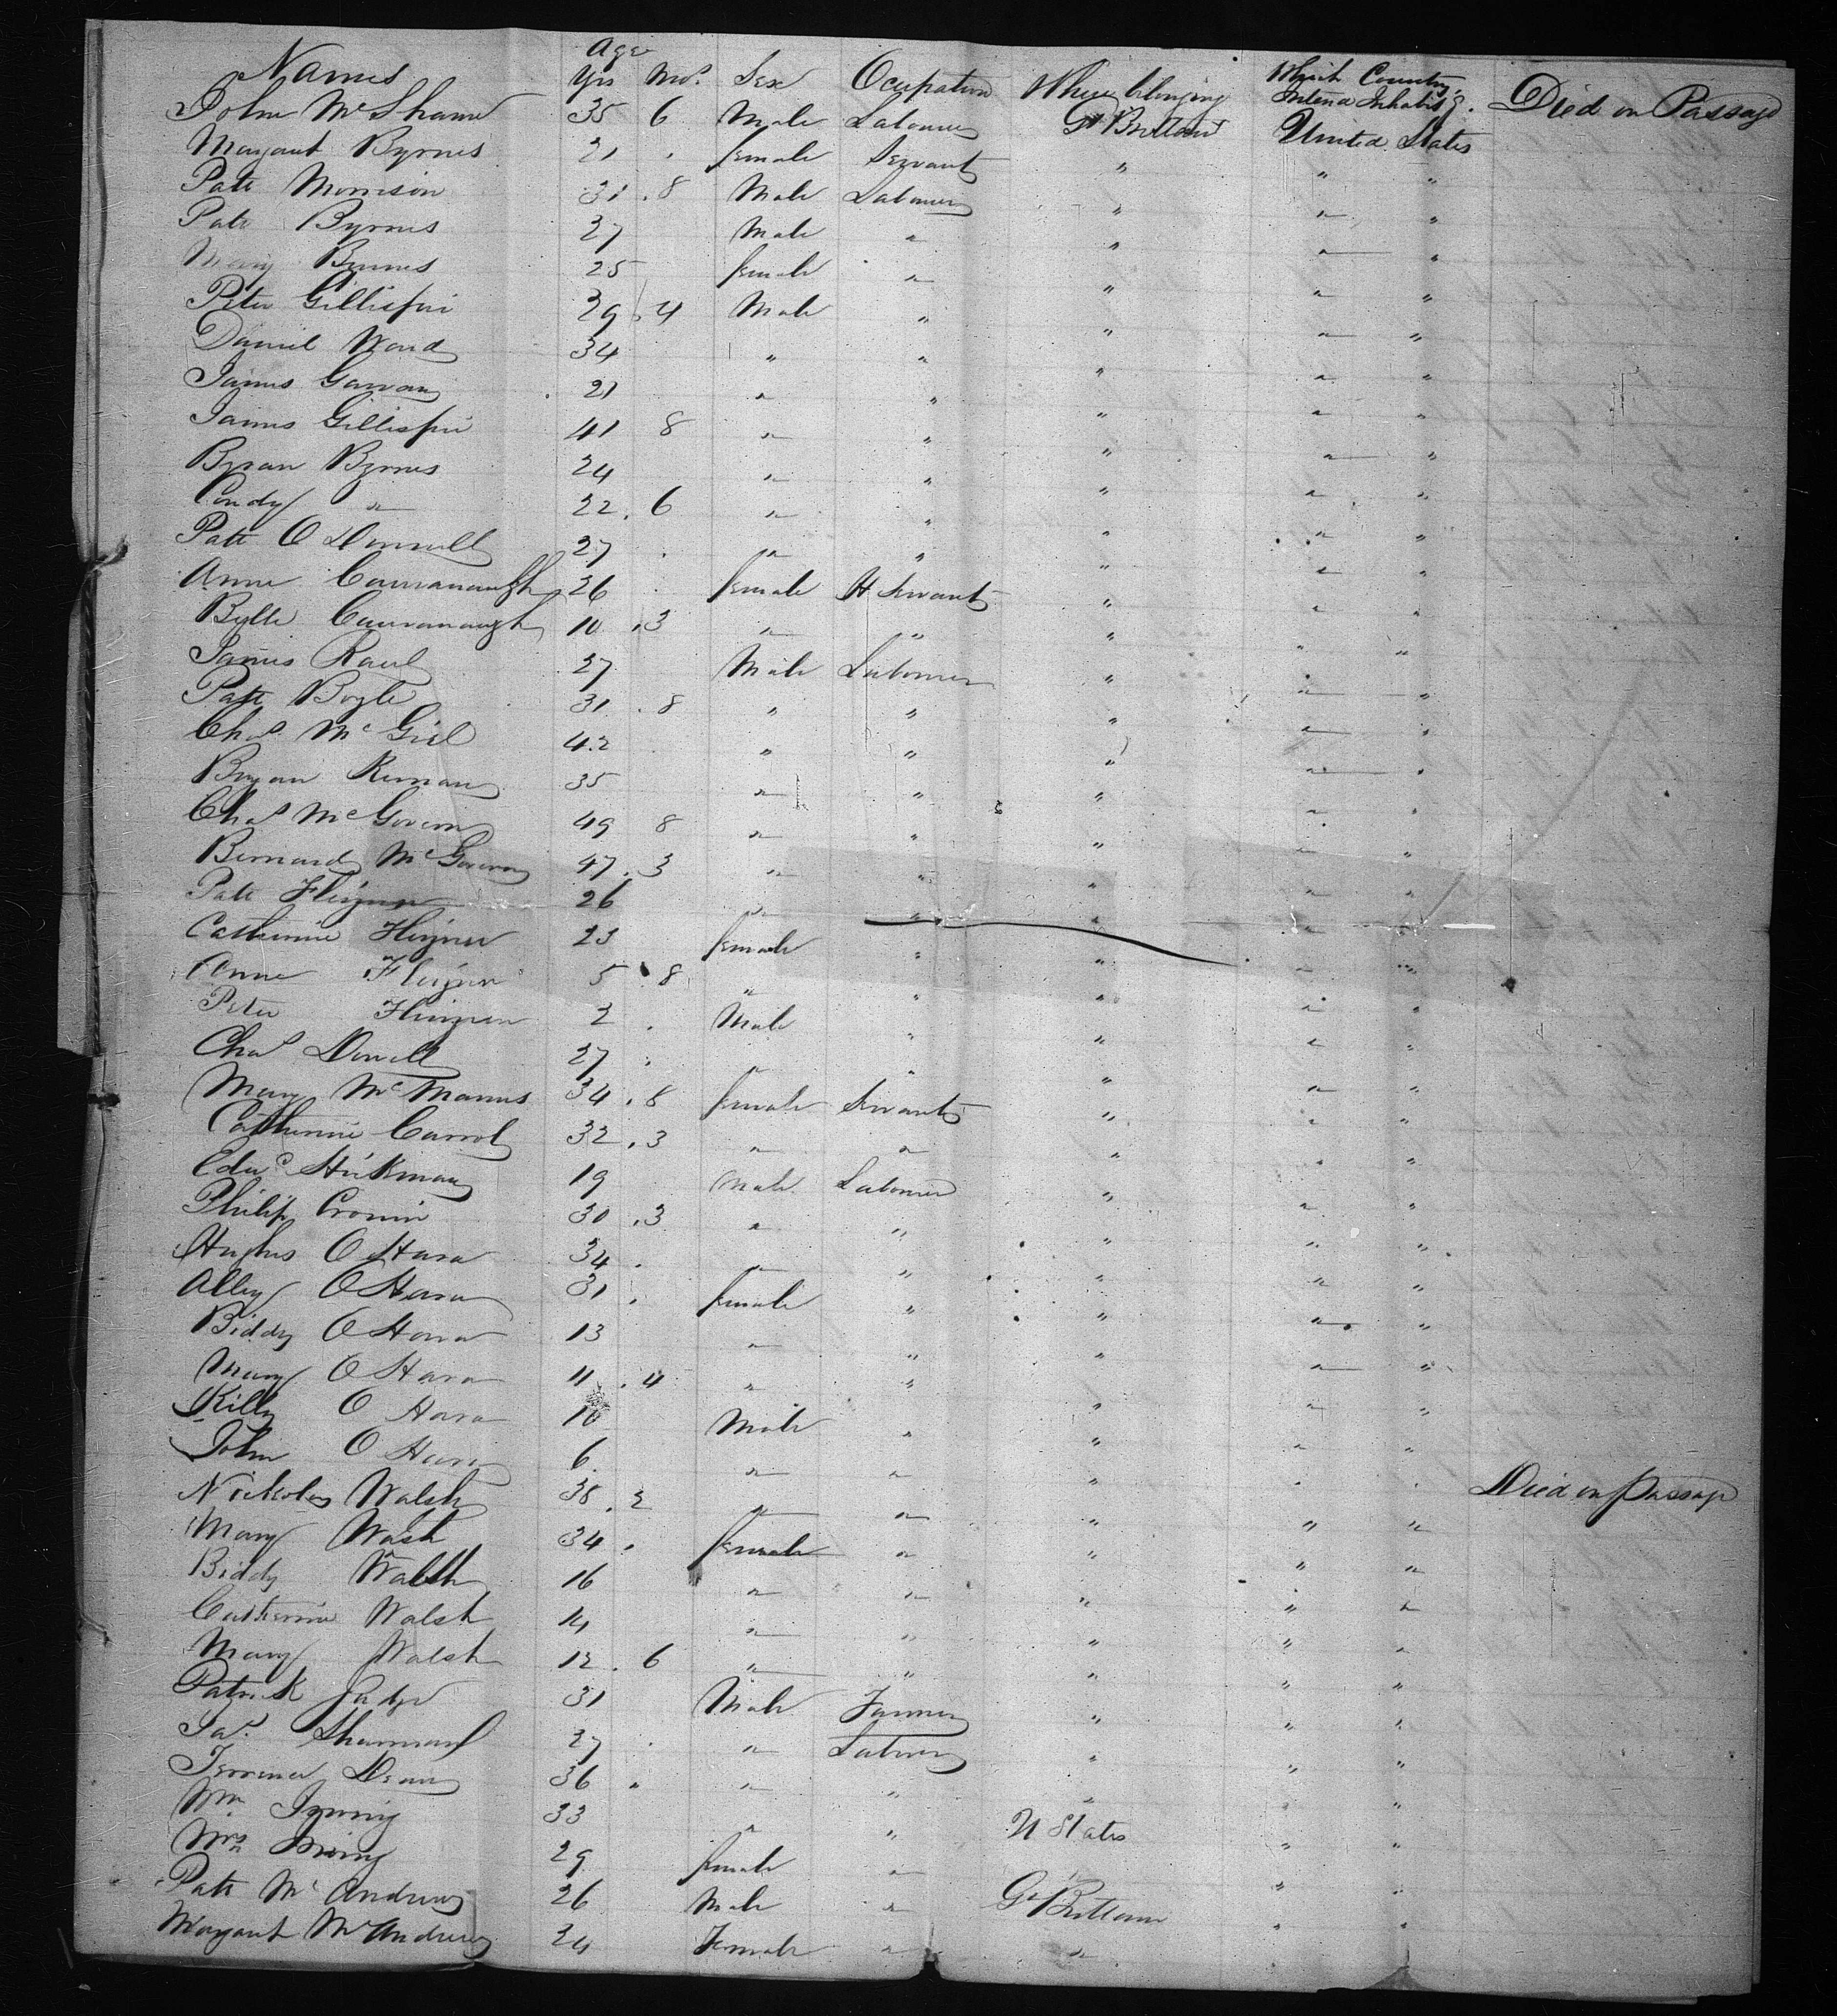 Names Age Yrs Mos. Sex Ocupation Where blonging Which Country Intend Inhabitg. Died on Passage
John McShane 35 6 Male Labourer Gt Brittain United States
Margaret Byrnes 21 . female Servant " " "
Patt Morrison 31 . 8 Male Labourer " " "
Patt Byrnes 27 Male " " " "
Mary Byrnes 25 female " " " "
Peter Gillispie 29 . 4 Male " " " "
Daniel Ward 34 " " " " "
James 21 " " " " "
James Gillispie 41 8 " " " " "
Bryan Byrnes 24 " " " " "
Condy " 22 . 6 " " " " "
Patt O Donnell 27 . " " " " "
Anne Cauvanaugh 26 . female H Servant " " "
Bylle Cauvanaugh 10 . 3 " " " " "
James 27 Male Labourer " " "
Patt Boyle 31 . 8 " " " " "
Chas. McGirl 42 " " " " "
Bryan Kernan 35 " " " " "
Chas McGovern 49 8 " " " " "
Bernard McGovern 47 . 3 " " " " "
Patt 26 " " " " "
Catherine 23 female " " " "
Anne 5 . 8 " " " " "
Peter 2 . Male " " " "
Chas 27 . " " " " "
Mary McManus 34 . 8 female Servant " " "
Catherine Carrol 32 . 3 " " " " "
Edwd 19 Male Labourer " " "
Philip Cronin 30 . 3 " " " " "
Hughs O Hara 34 . " " " " "
Alley O Hara 31 . female " " " "
Biddy O Hara 13 " " " " "
Mary O Hara 11 . 4 " " " " "
Killy O Hara 10 Male " " " "
John O Hara 6 " " " " " Died on passage
Nickolas Walsh 38 . 2 " " " " "
Mary Wash 34 . female " " " "
Biddy Walsh 16 " " " " "
Catherine Walsh 14 " " " " "
Mary Walsh 12 . 6 " " " " "
Patrick 31 Male Farmer " " "
Jas. 27 . " Labourer " " "
Terrence 36 . " " " " "
Wm Irving 33 " " U States " "
Mrs Irving 29 female " " "
Patt McAndrew 26 Male " Gt Brittain " "
Margaret McAndrew 24 Female " "